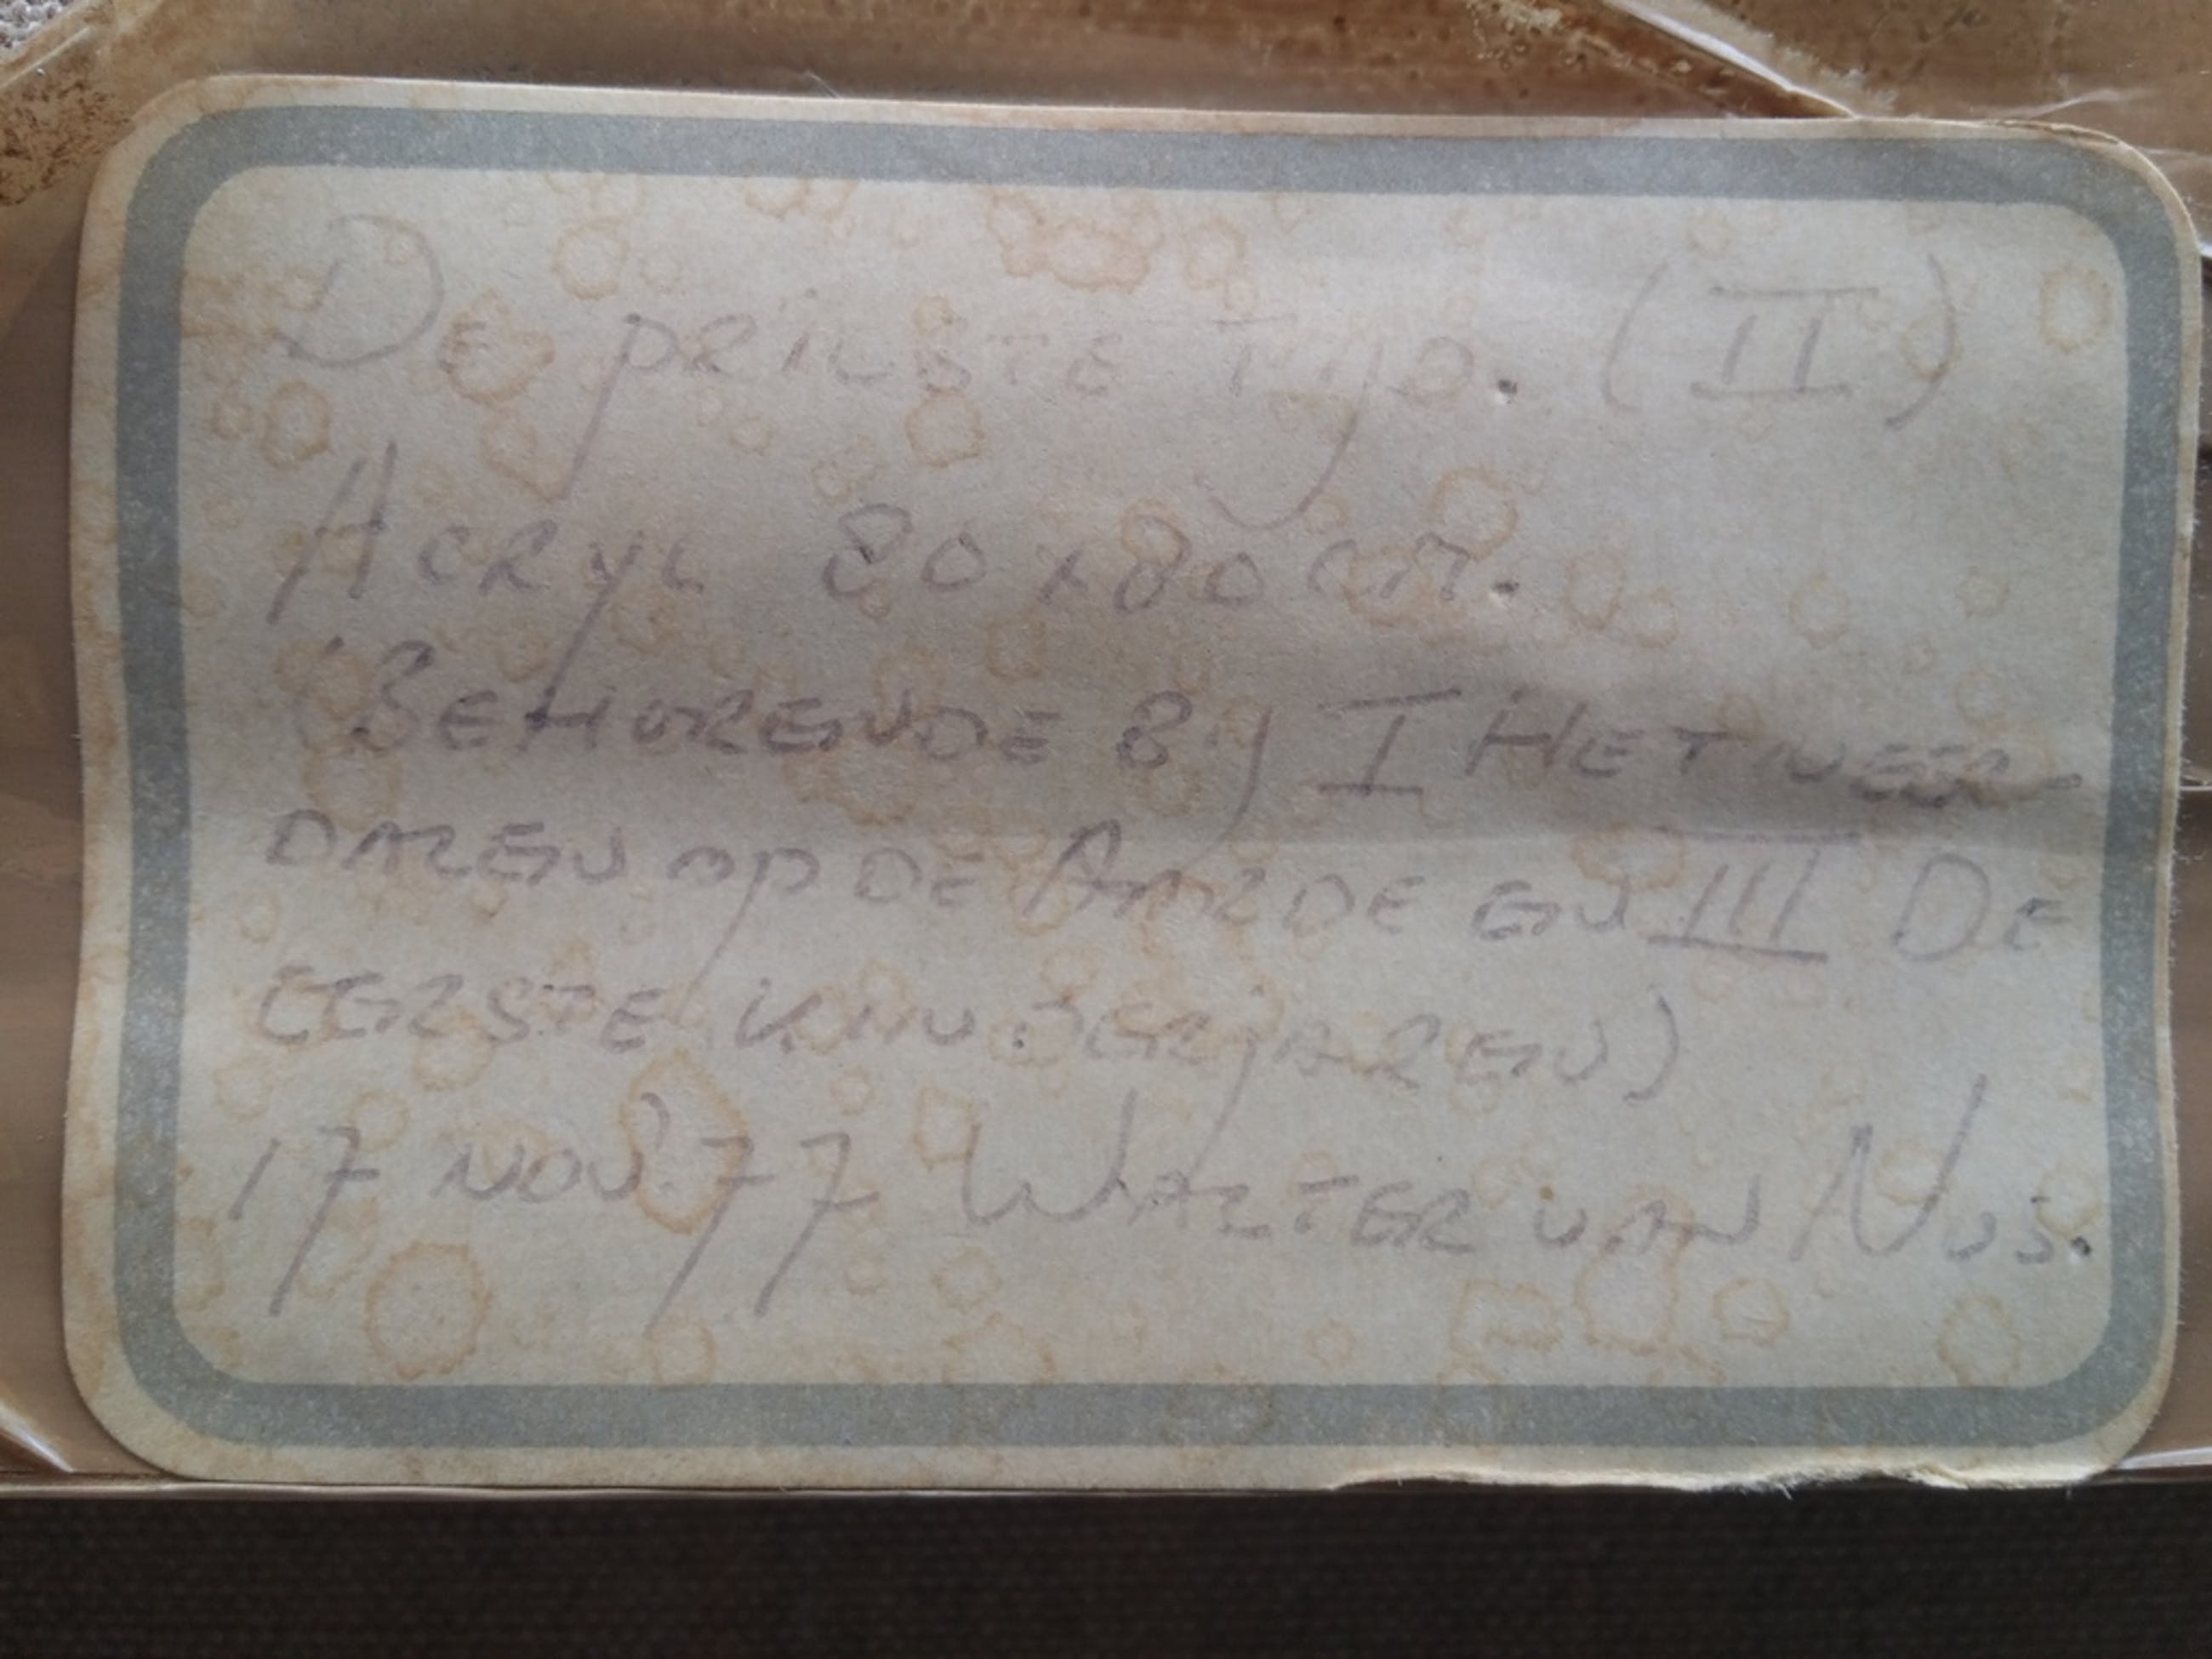 De prilste tijd. (II)
Acryl 80x80cm.
(Behorende bij I Het neer-
dalen op de Aarde en III De
eerste kinderjaren)
17 nov. '77 Walter van